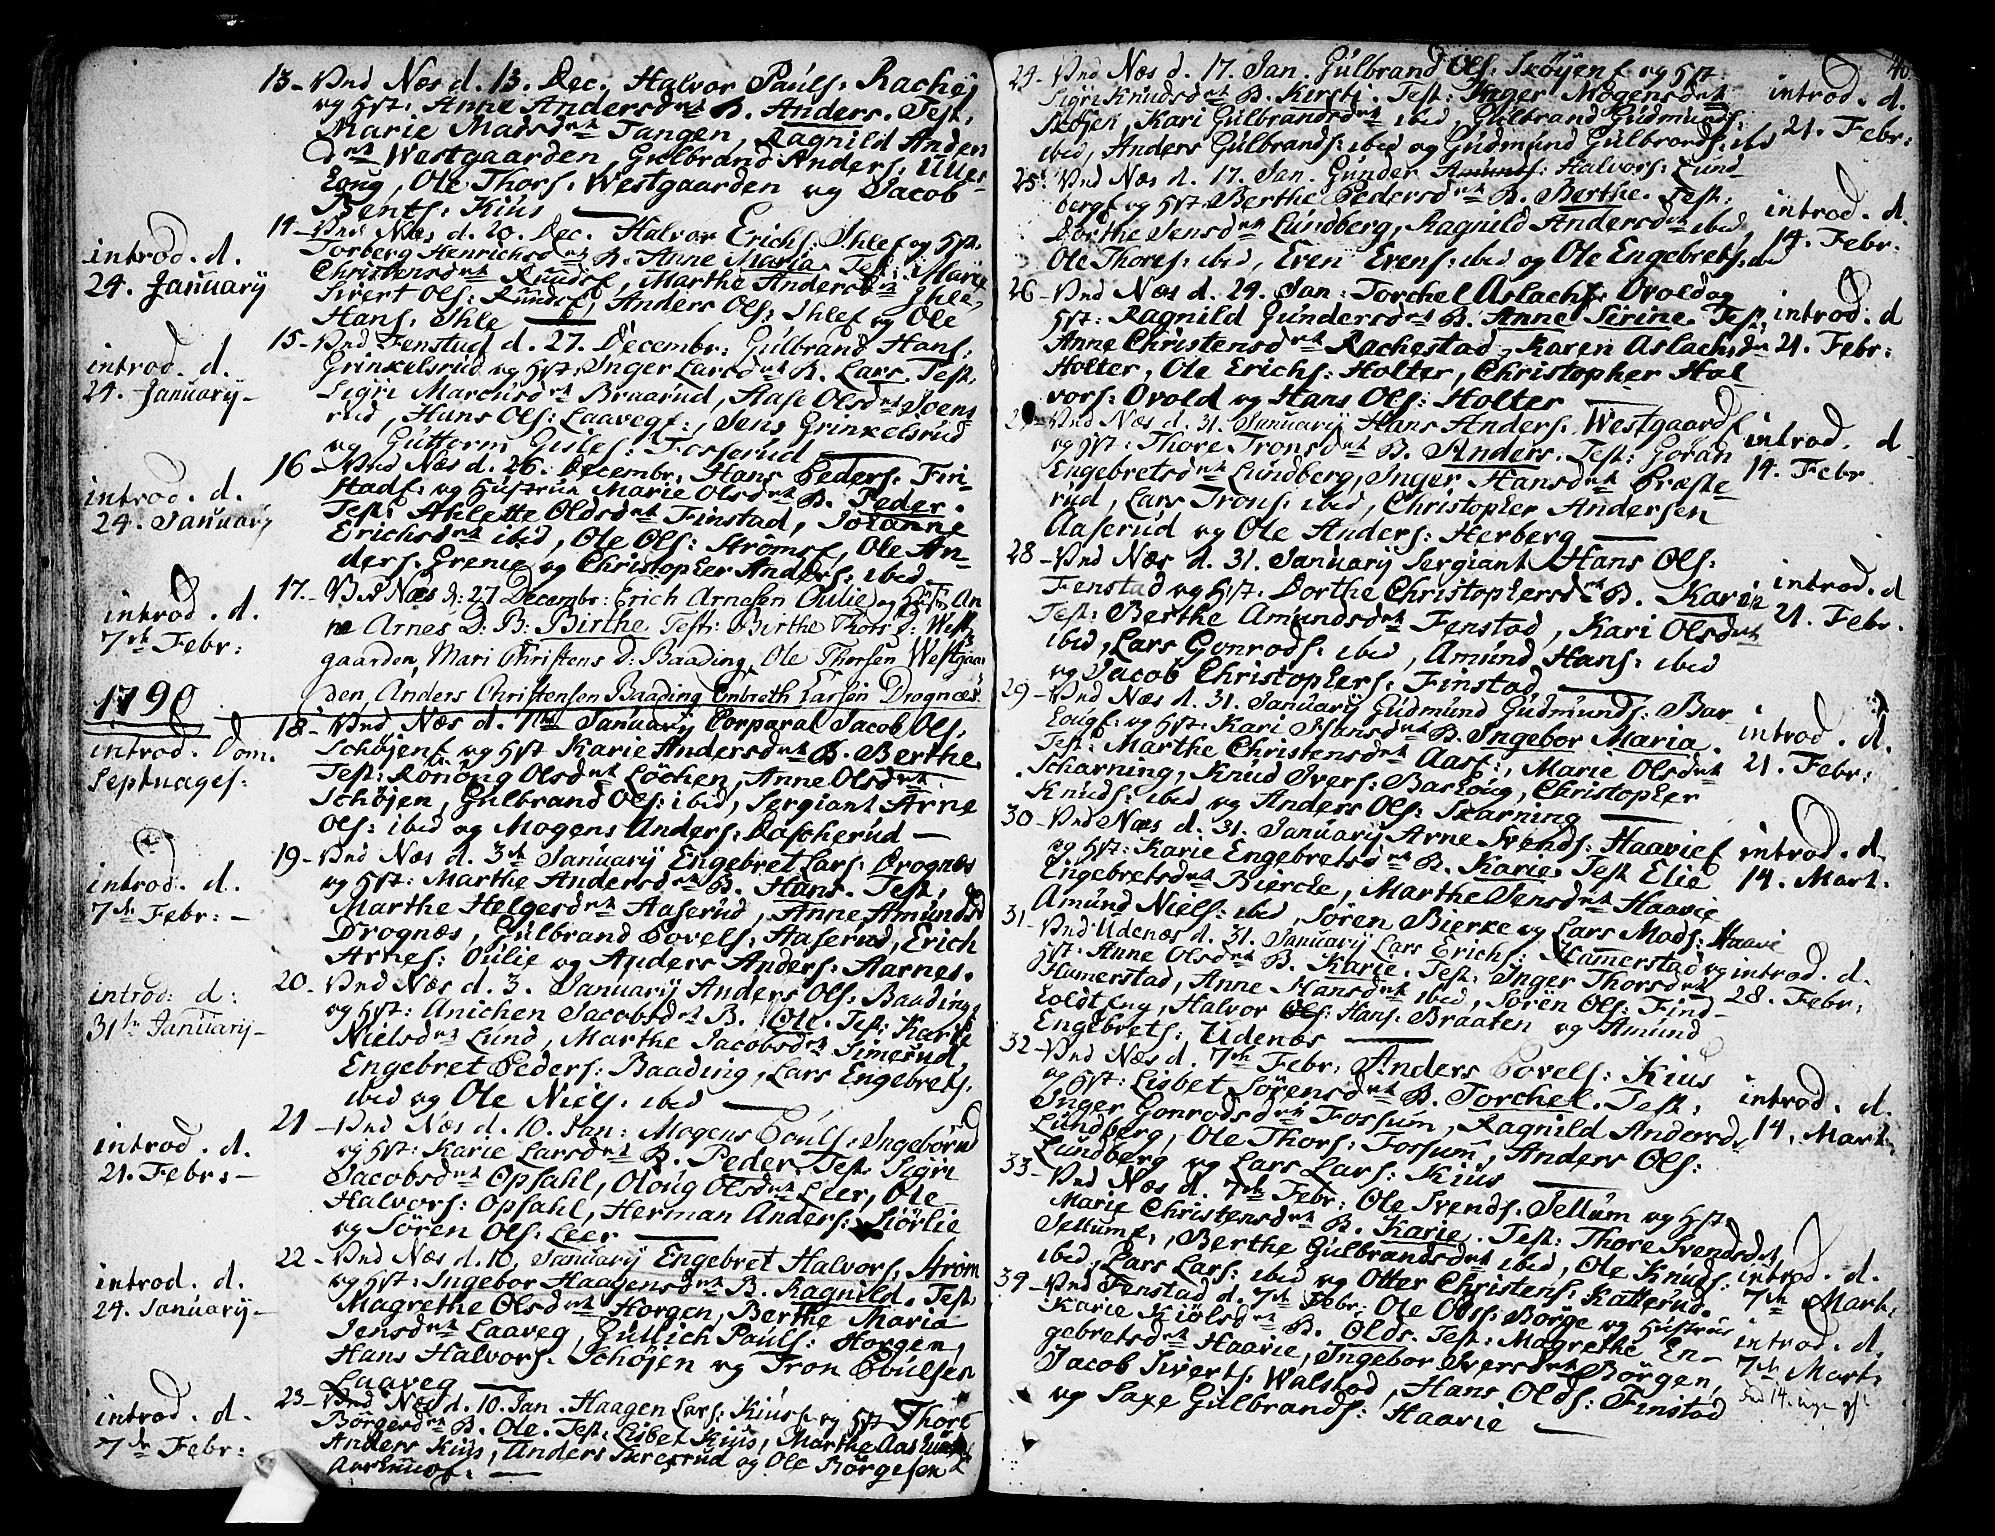 13- Vnd Næs d. 13. Dec. Halvor Pauls: Rachej
og Hst: Anne Andersdrt B. Anders. Test.
Marie Madsdrt Tangen, Ragnild Anders
drt Westgaarden, Gulbrand Anders: Uller-
Eoug, Ole Thors: Westgaarden og Jacob
Bents: Kius
introd. d. 24. January
14- Vnd Næs d. 20. Dec. Halvor Erichs: Ihlef og Hst.
Torberg Henrichsdrt B. Anne Maria. Test: Marie
Christensdrt Rundsf, Marthe Andersdrt Ihle,
Sivert Ols: Rundsf, Anders Ols: Ihlef og Ole
Hans. Ihle
introd. d. 24. January-
15- Vnd Fenstad d. 27. Decembr: Gulbrand Hans:
Grinkelsrud og Hst: Inger Larsdrt B. Lars. Test.
Sigri Marcusdrt Braarud, Aase Olsdrt Joens
rud, Hans Ols: Laavegf:, Jens Grinkelsrud
og Guttorm Gisles: Fosserud
introd. d. 24. January
16- Vnd Næs d. 26. Decembr. Hans Peders: Fin-
stadf: og Hustrue Marie Olsdrt B. Peder.
Test: Ahlette Oldsdrt Finstad, Johanne
Erichsdrt ibid, Ole Ols: Strømsf, Ole An-
ders: Grenie og Christopher Anders: ibid.
introd. d. 7de Febr:
17.- Næs d: 27 Decembr: Erich Arnesen Oulie og H: An
ne Arnes D: B: Birthe Test: Birthe Thors D: West
gaarden, Mari Christens D: Baading, Ole Thorsen Westgaar
den, Anders Christensen Baading Enbreth Larsen Drognæs.
1790
introd. Dom.
Septuages:
18- Vnd Næs d. 7de January Corporal Jacob Ols.
Schøjenf og Hst Karie Andersdrt B. Berthe
Test: Rønoug Olsdrt Løchen, Anne Olsdrt
Schøjen, Gulbrand Ols: ibid, Sergiant Arne
Ols: ibid og Mogens Anders: Dascherud —
introd. d. 7de Febr: -
19- Vnd Næs d. 3de January Engebret Lars: Drognæs
og Hst: Marthe Andersdrt B. Hans. Test.
Marthe Helgesdrt Aaserud, Anne Amundsd
Drognæs, Gulbrand Povels: Aaserud, Erich
Arnes: Oulie og Anders Anders: Aarnes.
introd: d:
31te January-
20- Vnd Næs d. 3. January Anders Ols: Baading,
og Hst: Anichen Jacobsdt B. Ole. Test: Karie
Nielsdrt Lund, Marthe Jacobsdrt Simerud,
Engebret Peders: Baading, Lars Engebrets.
ibid og Ole Niels. ibid
introd. d. 21. Febr: -
21 - Vnd Næs d. 10. Jan: Mogens Pouls. Ingeborud
og Hst: Karie Larsdrt B. Peder. Test. Sigri
Jacobsdrt Opsahl, Oloug Olsdrt Leer, Ole
Halvors: Opsahl, Herman Anders: Siørlie
og Søren Ols: Leer
introd. d. 24. January-
22 - Vnd Næs d. 10. January Engebret Halvors. Strøm
og Hst: Ingebor Haagensdrt B. Ragnild. Test.
Magrethe Olsdrt Horgen, Berthe Maria
Jensdrt Laaveg, Gullich Pauls: Horgen,
Hans Halvors. Schøjen og Tron Poulsen
Laaveg
introd. d. 7de Febr:
23- Vnd Næs d. 10. Jan. Haagen Lars: Kiusf og Hst Thore
Børgesdrt B. Ole. Test. Lisbet Kius, Marthe
Anders Kius, Anders og Ole Børgesen
24- Vnd Næs d. 17. Jan. Gulbrand Ols: Skøyenf og Hst:
Sigri Knudsdrt B. Kirsti. Test: Inger Mogensdrt
Skøjen, Kari Gulbrandsdrt ibid, Gulbrand Gudmunds:
ibid, Anders Gulbrands: ibid og Gudmund Gulbrands: ibd
introd. d. 21. Febr:
25- Vnd Næs d. 17. Jan. Gunder Halvors: Lund-
bergf og Hst. Berthe Pedersdrt B. Berthe. Test.
Dorthe Jensdrt Lundberg, Ragnild Andersdrt ibid,
Ole Thores: ibid, Even Evens: ibid og Ole Engebrets: ibid
introd. d. 14. Febr:
26 - Vnd Næs d. 24. Jan: Torchel Aslachs Ovold og
Hst: Ragnild Gundersdrt B. Anne Sirine. Test.
Anne Christensdrt Rachestad, Karen Aslachsdr
Holter, Ole Erichs: Holter, Christopher Hal
vors: Ovold og Hans Ols: Holter
introd. d 21. Febr:
27- Vnd Næs d. 31. January Hans Anders. Westgaardf
og Hst: Thore Tronsdrt B. Anders. Test: Gøran
Engebretsdrt Lundberg, Inger Hansdrt Præste
rud, Lars Trons: ibid, Christopher Andersen
Aaserud og Ole Anders: Herberg
introd. d 14. Febr
28 - Vnd Næs d. 31. January Sergiant Hans Ols:
Fenstad og Hst. Dorthe Christophersdrt B. Karin
Test: Berthe Amundsdrt Fenstad, Kari Olsdrt
ibid, Lars Gonrods: ibid, Amund Hans: ibid
og Jacob Christophers: Finstad
introd. d 21. Febr.
29 - Vnd Næs d. 31. January Gudmund Gudmunds: Bas-
Eougf: og Hst: Kari Hansdrt B. Ingebor Maria.
Test: Marthe Christensdrt Aasf:, Marie Olsdrt
Scharning, Knud Ivers: Baskoug, Christopher
Knuds: ibid og Anders Ols: Skarning
introd. d. 21. Febr:
30 - Vnd Næs d. 31. January Arne Svends: Haavief
og Hst: Karie Engebretsdrt B. Karie. Test Elie
Engebretsdrt Biercke, Marthe Jensdrt Haavie
Amund Niels: ibid, Søren Bierke og Lars Mads: Haavie
introd. d. 14. Mart.
31- Vnd Udenæs d. 31. January Lars Erichs: Hamerstad og
Hst: Anne Olsdrt B. Karie. Test: Inger Thorsdrt
Hamerstad, Anne Hansdrt ibid, Søren Ols: Find-
Eoldteng, Halvor Ols: Hans: Braaten og Amund
Engebrets: Udenæs
introd. d. 28. Febr:
32- Vnd Næs d. 7de Febr: Anders Povels: Kius
og Hst: Lisbet Sørensdrt B. Torchel. Test:
Inger Gonrodsdrt Fossum, Ragnild Andersd
Lundberg, Ole Thors: Fossum, Anders Ols:
Lundberg og Lars Lars: Kius
introd. d. 14. Mart.
33- Vnd Næs d. 7de Febr: Ole Svends: Sellum og Hst:
Marie Christensdrt B. Karie. Test: Thore Svendsdt,
Sellumf, Berthe Gulbrandsdrt ibid, Ole Knuds:
ibid, Lars Lars: ibid og Otter Christens: Katterud.
introd. d. 7de Mart:
34- Vnd Fenstad d. 7de Febr: Ole Olds: Børge og Hustrue
Karie Kiølsdrt B. Olds. Test: Magrethe En-
gebretsdrt Haavie, Ingebor Iversdrt Børgen,
Jacob Siverts: Walstad, Hans Olds: Finstad
og Saxe Gulbrands: Haavie
introd. d. 7de Mart: